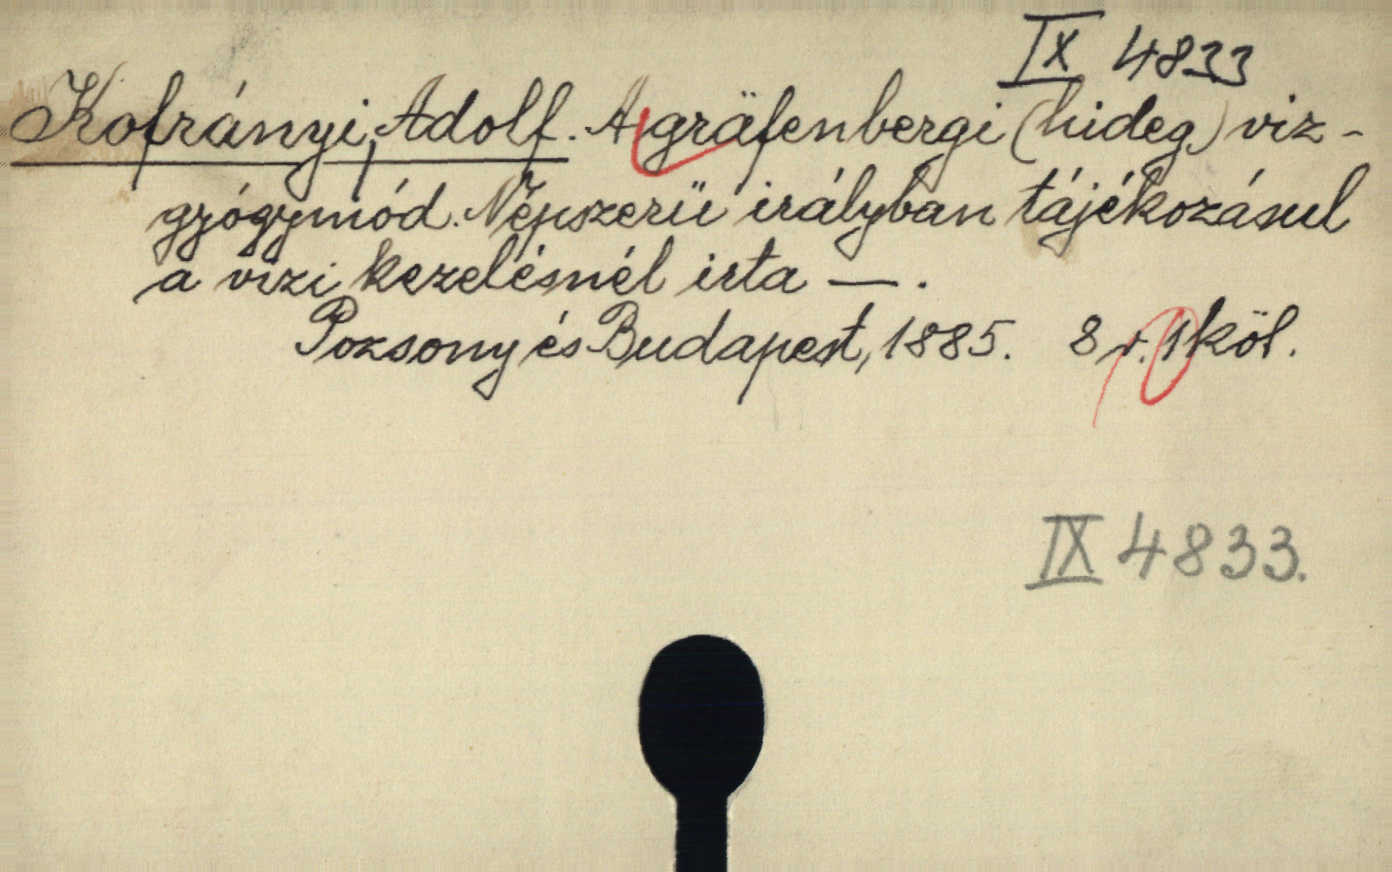 IX 4833
Kofrányi, Adolf. A gräfenbergi (hideg) viz-
gyógymód. Népszerü irályban tájékozásul
a vizi kezelésnél irta —.
Pozsony és Budapest, 1885. 8 r. 1 köt.
IX 4833.